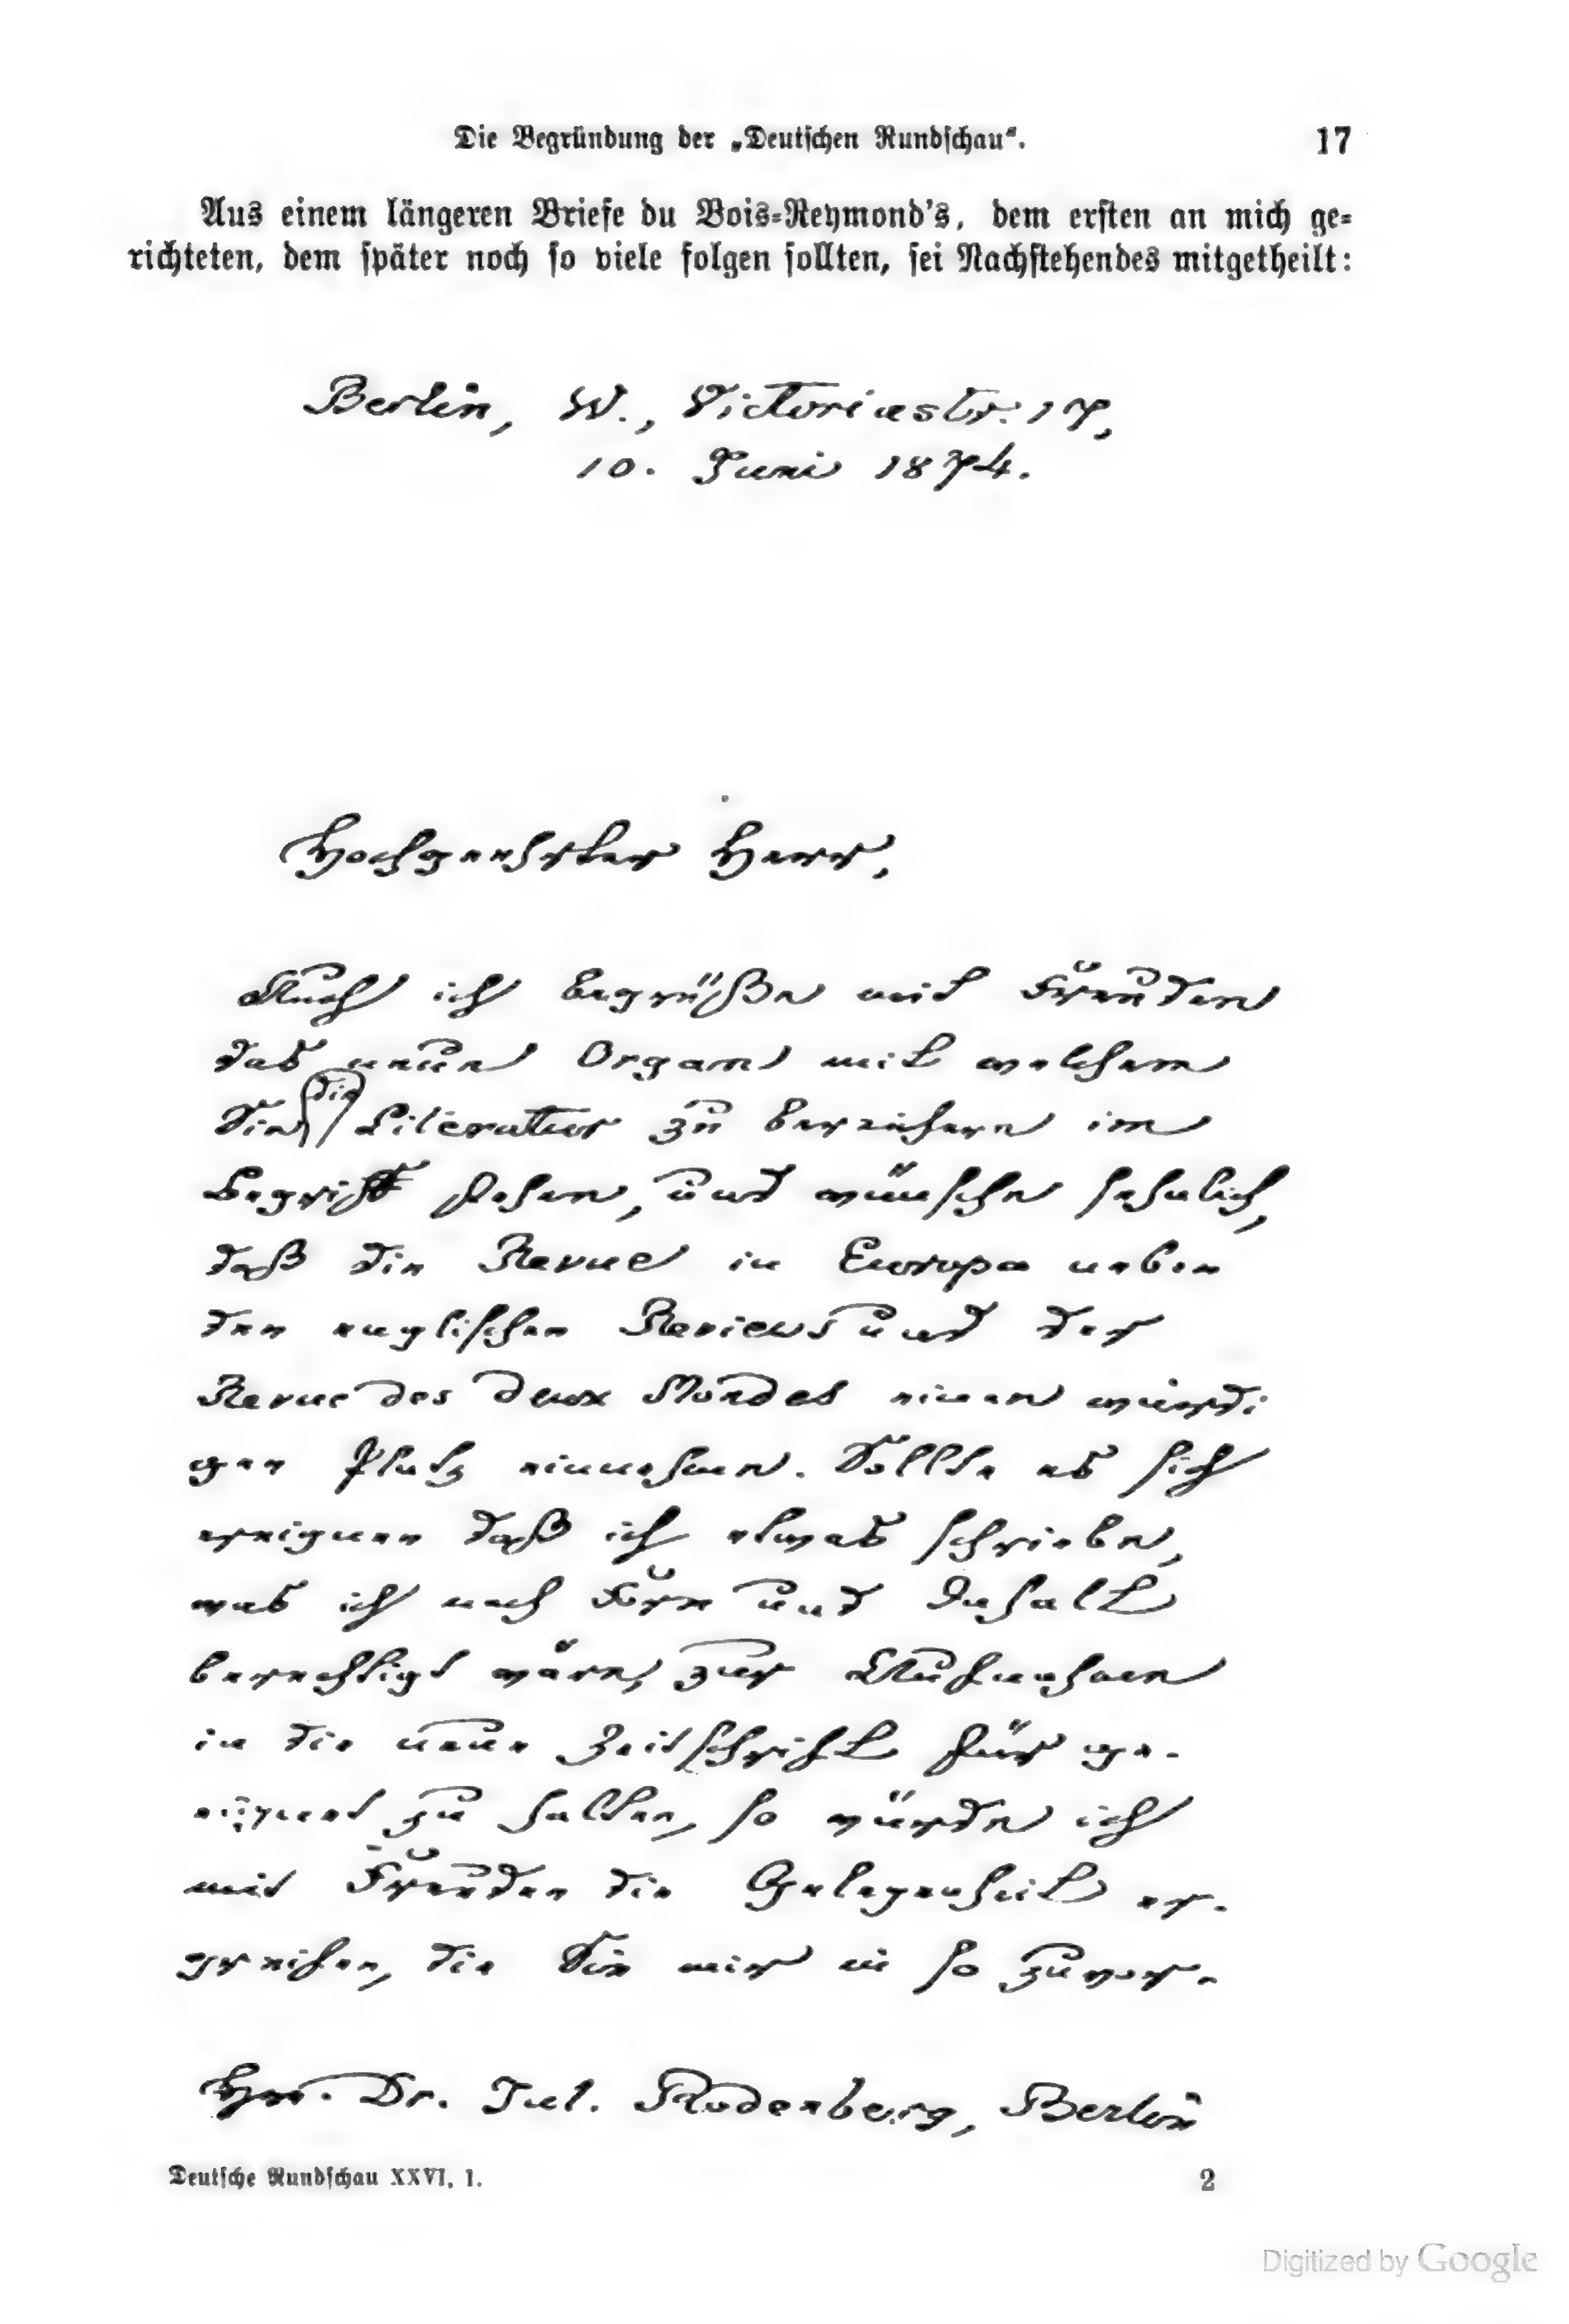 Die Begründung der „Deutschen Rundschau“. 17
Aus einem längeren Briefe du Bois-Reymond's, dem ersten an mich ge-
richteten, dem später noch so viele folgen sollten, sei Nachstehendes mitgetheilt:
Berlin, W., Victoriastr. 17,
10. Juni 1874.
Hochgeehrter Herr,
Auch ich begrüße mit Freuden
das neue Organ mit welchem
Sie die Literatur zu bereichern im
Begriff stehen, und wünsche sehnlich,
daß die Revue in Europa neben
den englischen Reviews und der
Revue des deux Mondes einen würdi-
gen Platz einnehmen. Sollte es sich
ereignen daß ich etwas schriebe,
was ich nach Form und Inhalt
berechtigt wäre, zur Aufnahme
in die neue Zeitschrift für ge-
eignet zu halten, so würde ich
mit Freuden die Gelegenheit er-
greifen, die Sie mir in so zuvor-
Hrn. Dr. Jul. Rodenberg, Berlin
Deutsche Rundschau XXVI, 1. 2
Digitized by Google